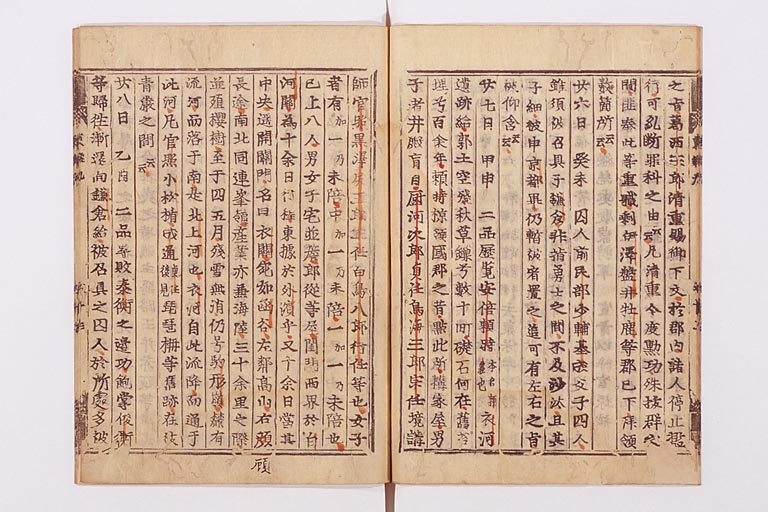 之旨葛西三郎清重賜御下文於郡内諸人停止濫
行可糺断罪科之由云々凡清重今度勲功殊抜群之
間匪奉此等重職剰伊澤盤井牡鹿等郡已下拝領
數箇所云々
廿六日 癸未 囚人前民部少輔基成父子四人
雖須被召具于鎌倉非指勇士之間不及沙汰且其
子細被申京都畢仍暫被宥置之追可有左右之旨
被仰含云々
廿七日 甲申 二品歴覧安倍頼時 衣河
遺跡給郭土空残秋草鎖兮數十町礎石何在舊苔
埋兮百余年頼時掠領國郡之昔點此所搆家屋男
子者井殿盲目厨河次郎貞任鳥海三郎宗任境講
師官照黒澤尻五郎正任白鳥八郎行任等也女子
者有加一乃末陪中加一乃末陪一加一乃末陪也
已上八人男女子宅並簷郎從等屋圍門西界於白
河關為十余日行程東據於外濱乎又十余日當其
中央遥開關門名曰衣關宛如函谷左鄰高山右顧
長途南北同連峯嶺産業亦兼海陸三十余里之際
並殖櫻樹至于四五月残雪無消仍号駒形嶺麓有
流河而落于南是北上河也衣河自北流降而通于
此河凡官照小松楯成通琵琶柵等舊跡在彼
青巖之間云々
廿八日 乙酉 二品 敗泰衡之邊功勉掌俊衡
等歸往漸還向鎌倉給被召具之囚人於所處多被
顧